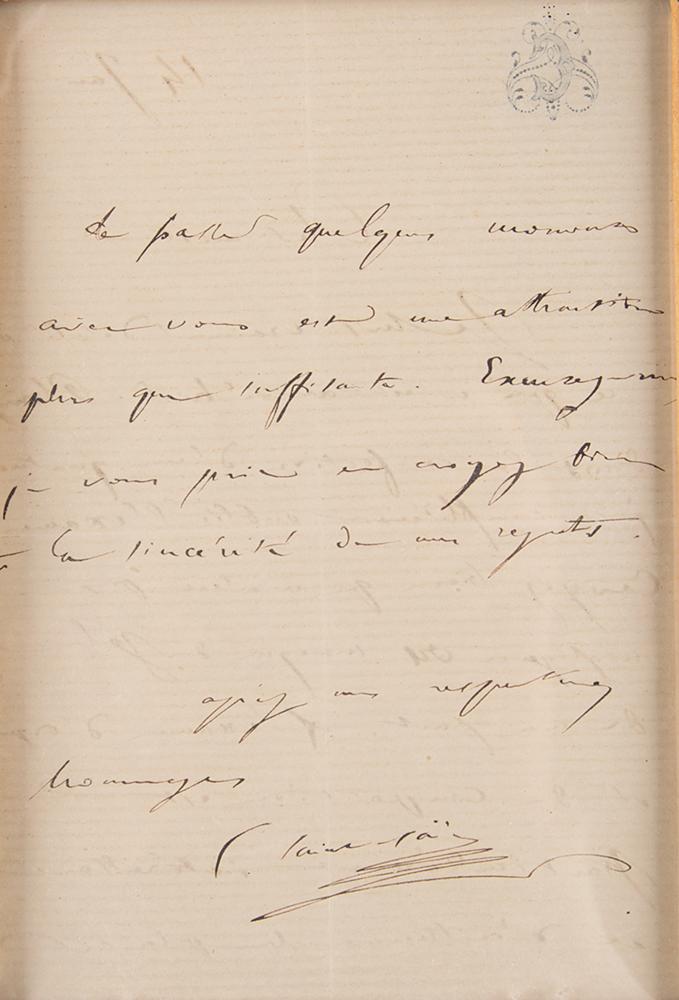 de passer quelques moments
avec vous est une attraction
plus que suffisante. Excusez-moi
je vous prie et croyez bien
à la sincérité de mes regrets.
agréez mes respectueux
hommages
C. Saint-Saëns